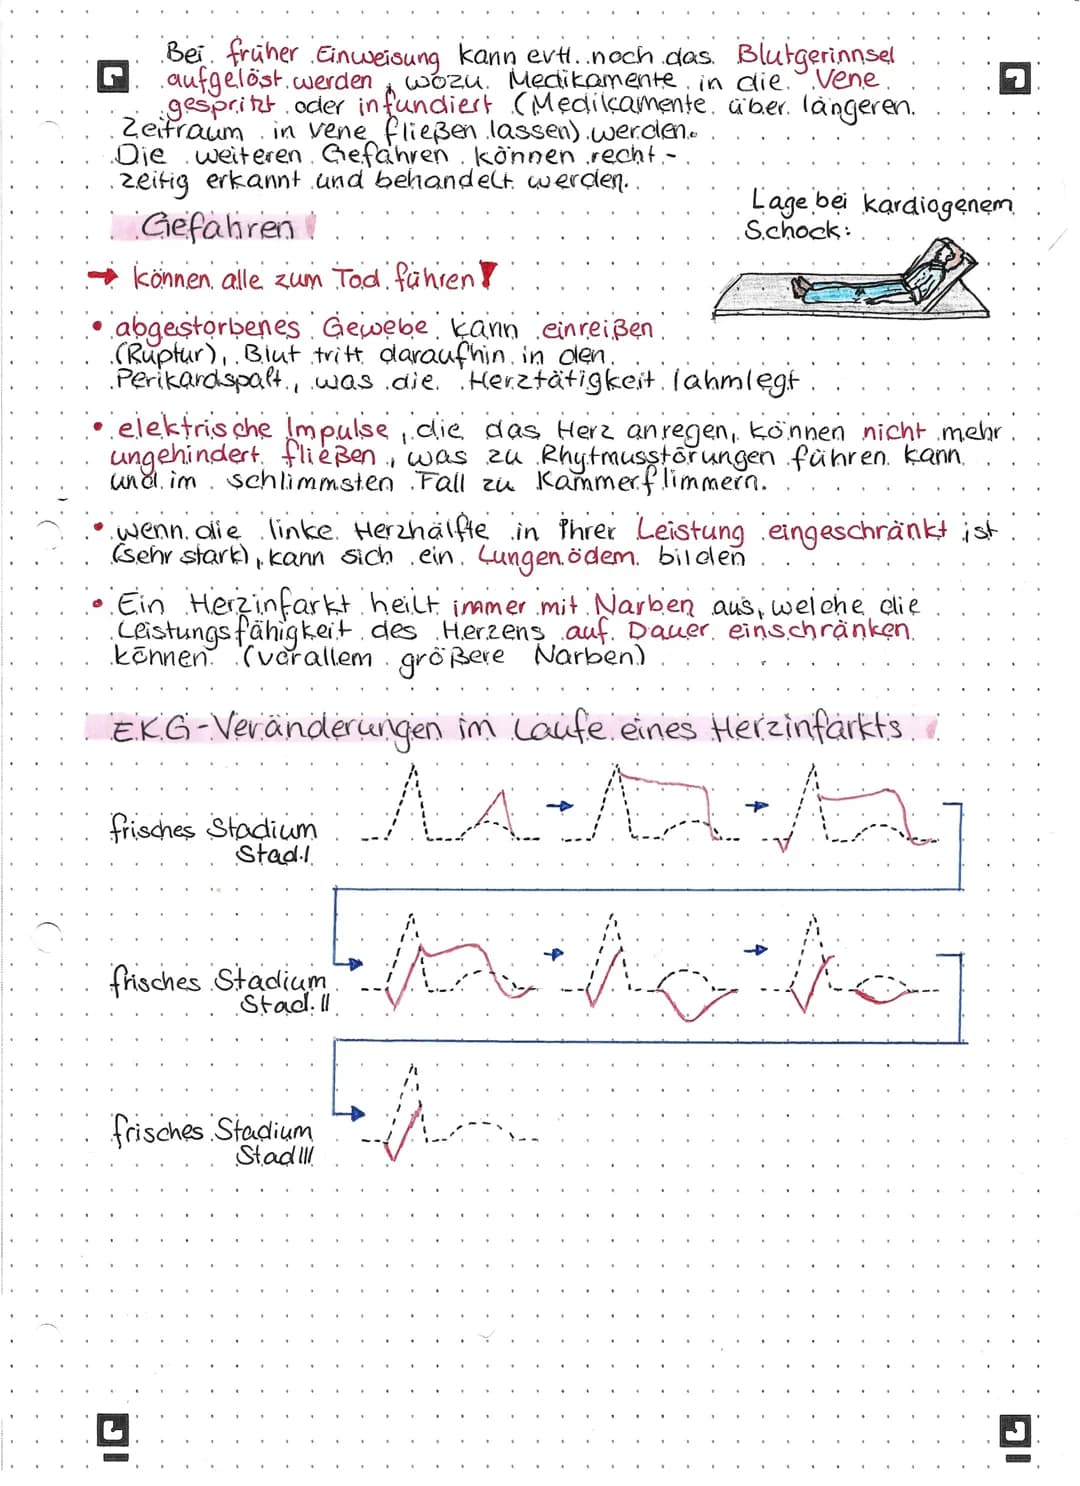 Bei früher Einweisung kann evtl. noch das Blutgerinnsel
aufgelöst werden, wozu Medikamente in die Vene
gespritzt oder infundiert (Medikamente über längeren
Zeitraum in Vene fließen lassen) werden.
Die weiteren Gefahren können recht-
zeitig erkannt und behandelt werden.
Lage bei kardiogenem
Schock:
Gefahren!
→ können alle zum Tod führen!
• abgestorbenes Gewebe kann einreißen
(Ruptur), Blut tritt daraufhin in den
Perikardspalt, was die Herztätigkeit lahmlegt
• elektrische Impulse, die das Herz anregen, können nicht mehr
ungehindert fließen, was zu Rhytmusstörungen führen kann
und im schlimmsten Fall zu Kammerflimmern.
• wenn die linke Herzhälfte in Ihrer Leistung eingeschränkt ist
(sehr stark), kann sich ein Lungenödem bilden
• Ein Herzinfarkt heilt immer mit Narben aus, welche die
Leistungsfähigkeit des Herzens auf Dauer einschränken
können. (vorallem größere Narben)
EKG-Veränderungen im Laufe eines Herzinfarkts
frisches Stadium
Stad.I
frisches Stadium
Stad.II
frisches Stadium
Stad III